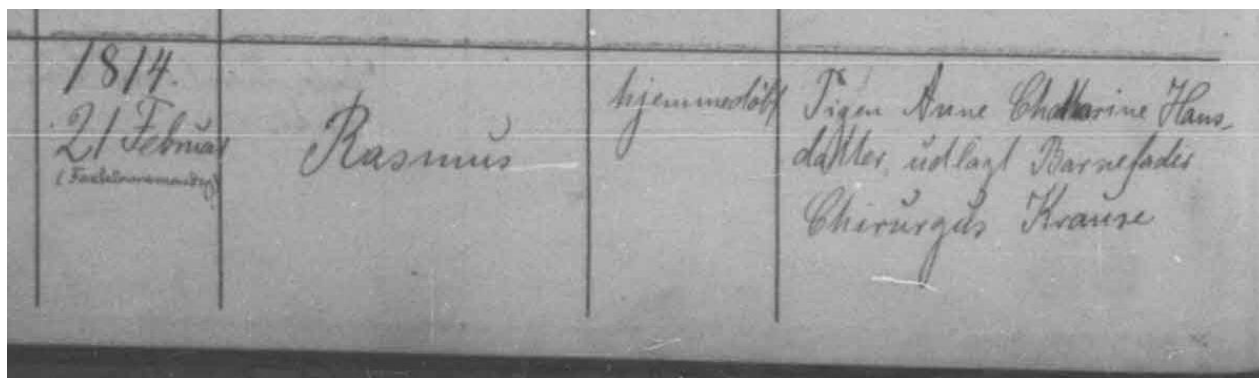 1814.
21 Februar
(Fastelavnsmandag)
Rasmus
hjemmedöbt
Pigen Anne Chatharine Hans-
datter, udlagt Barnefader
Chirurgus Krause